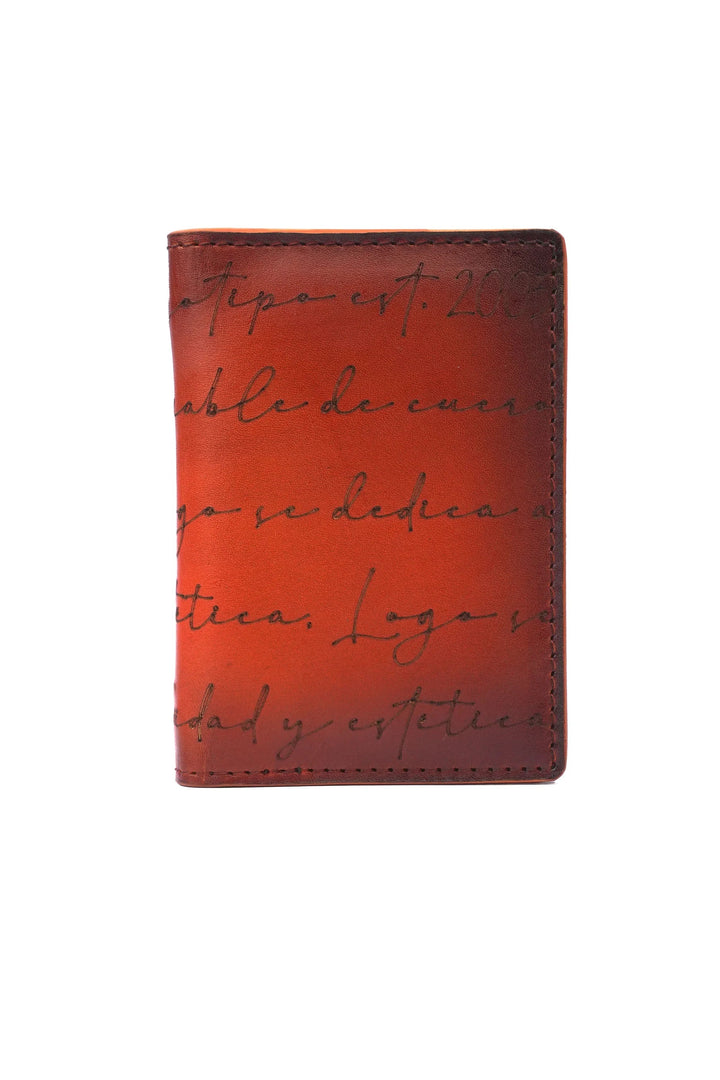 otipo est. 200
able de cuero
go se dedica a
ética. Logo se
idad y estética